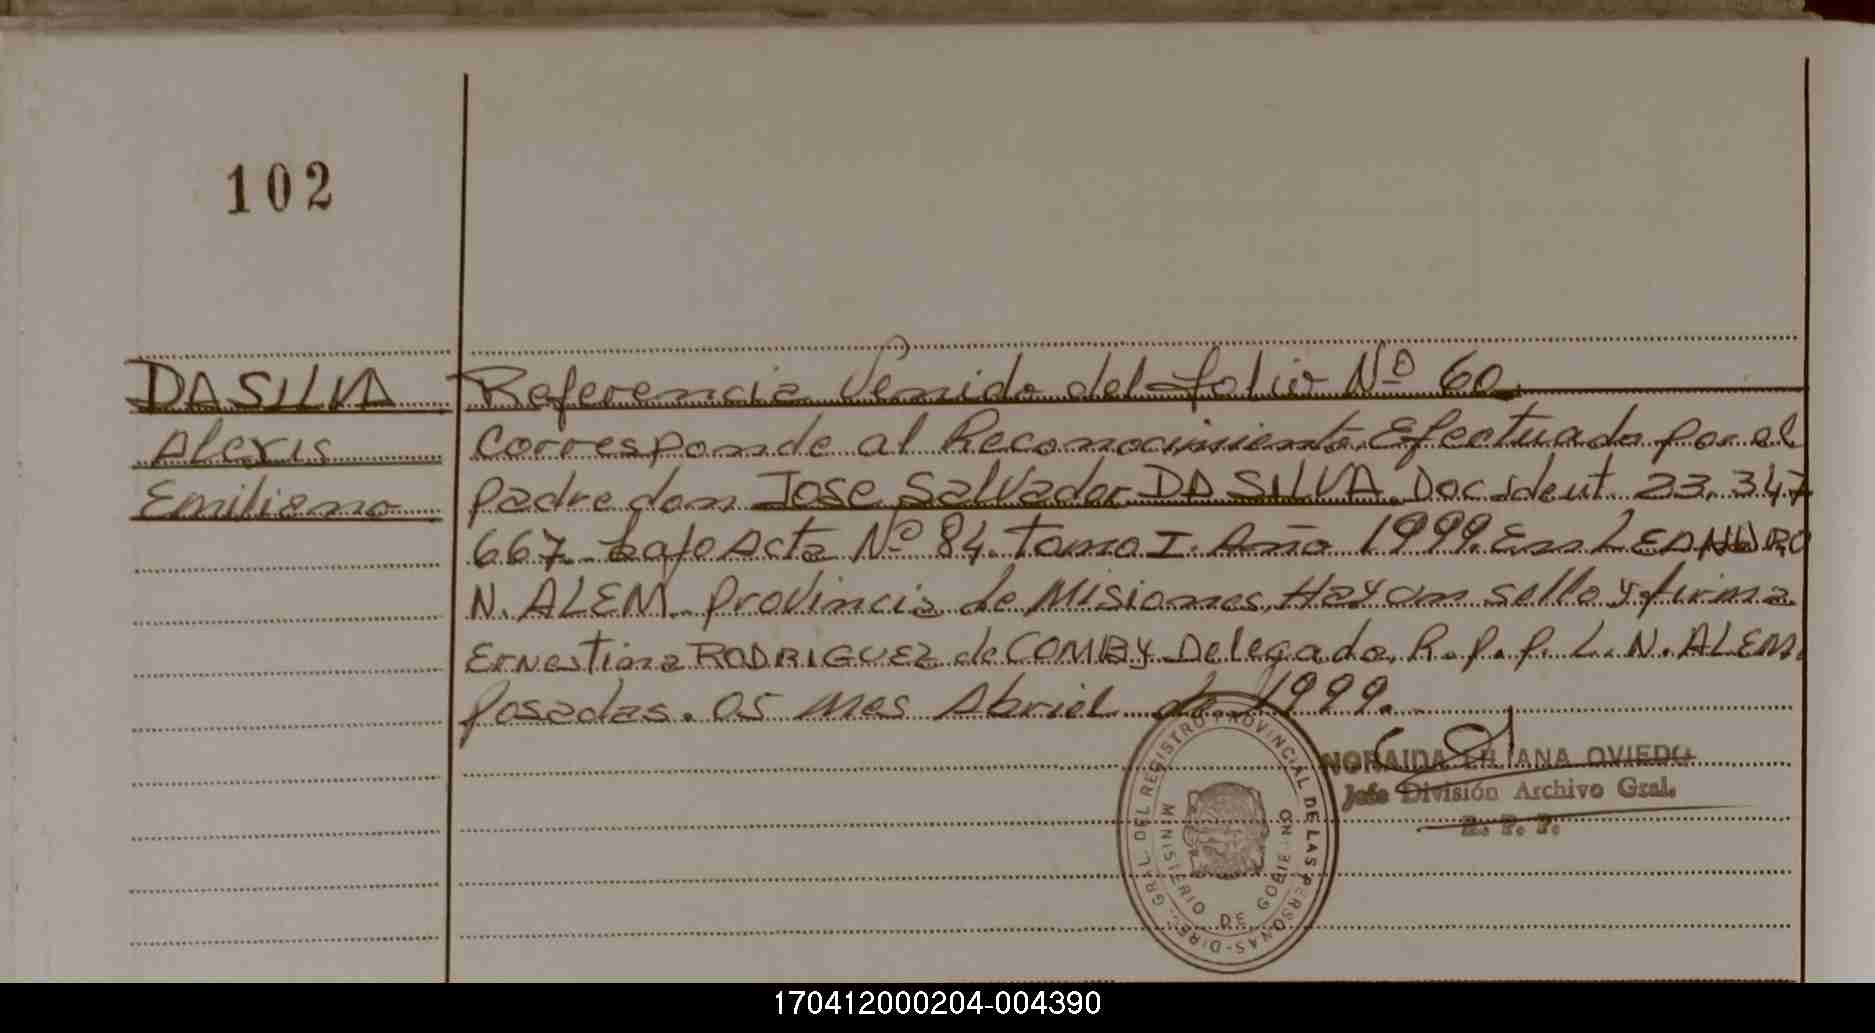 102
DA SILVA Referencia Venida del folio Nº 60.
Alexis Corresponde al Reconocimiento Efectuado por el
Emiliano padre don Jose Salvador DA SILVA. Doc ident. 23.347
667. bajo Acta Nº 84. Tomo I. Año 1999. En LEANDRO
N. ALEM. provincia de Misiones. Hay un sello y firma
Ernestina RODRIGUEZ de COMBY Delegada. R.p.p. L. N. ALEM.
Posadas. 05 mes Abril de 1999.
NORAIDA LILIANA OVIEDO
Jefe División Archivo Gral.
R. P. P.
DIREC. GRAL. DEL REGISTRO PROVINCIAL DE LAS PERSONAS
MINISTERIO DE GOBIERNO
170412000204-004390